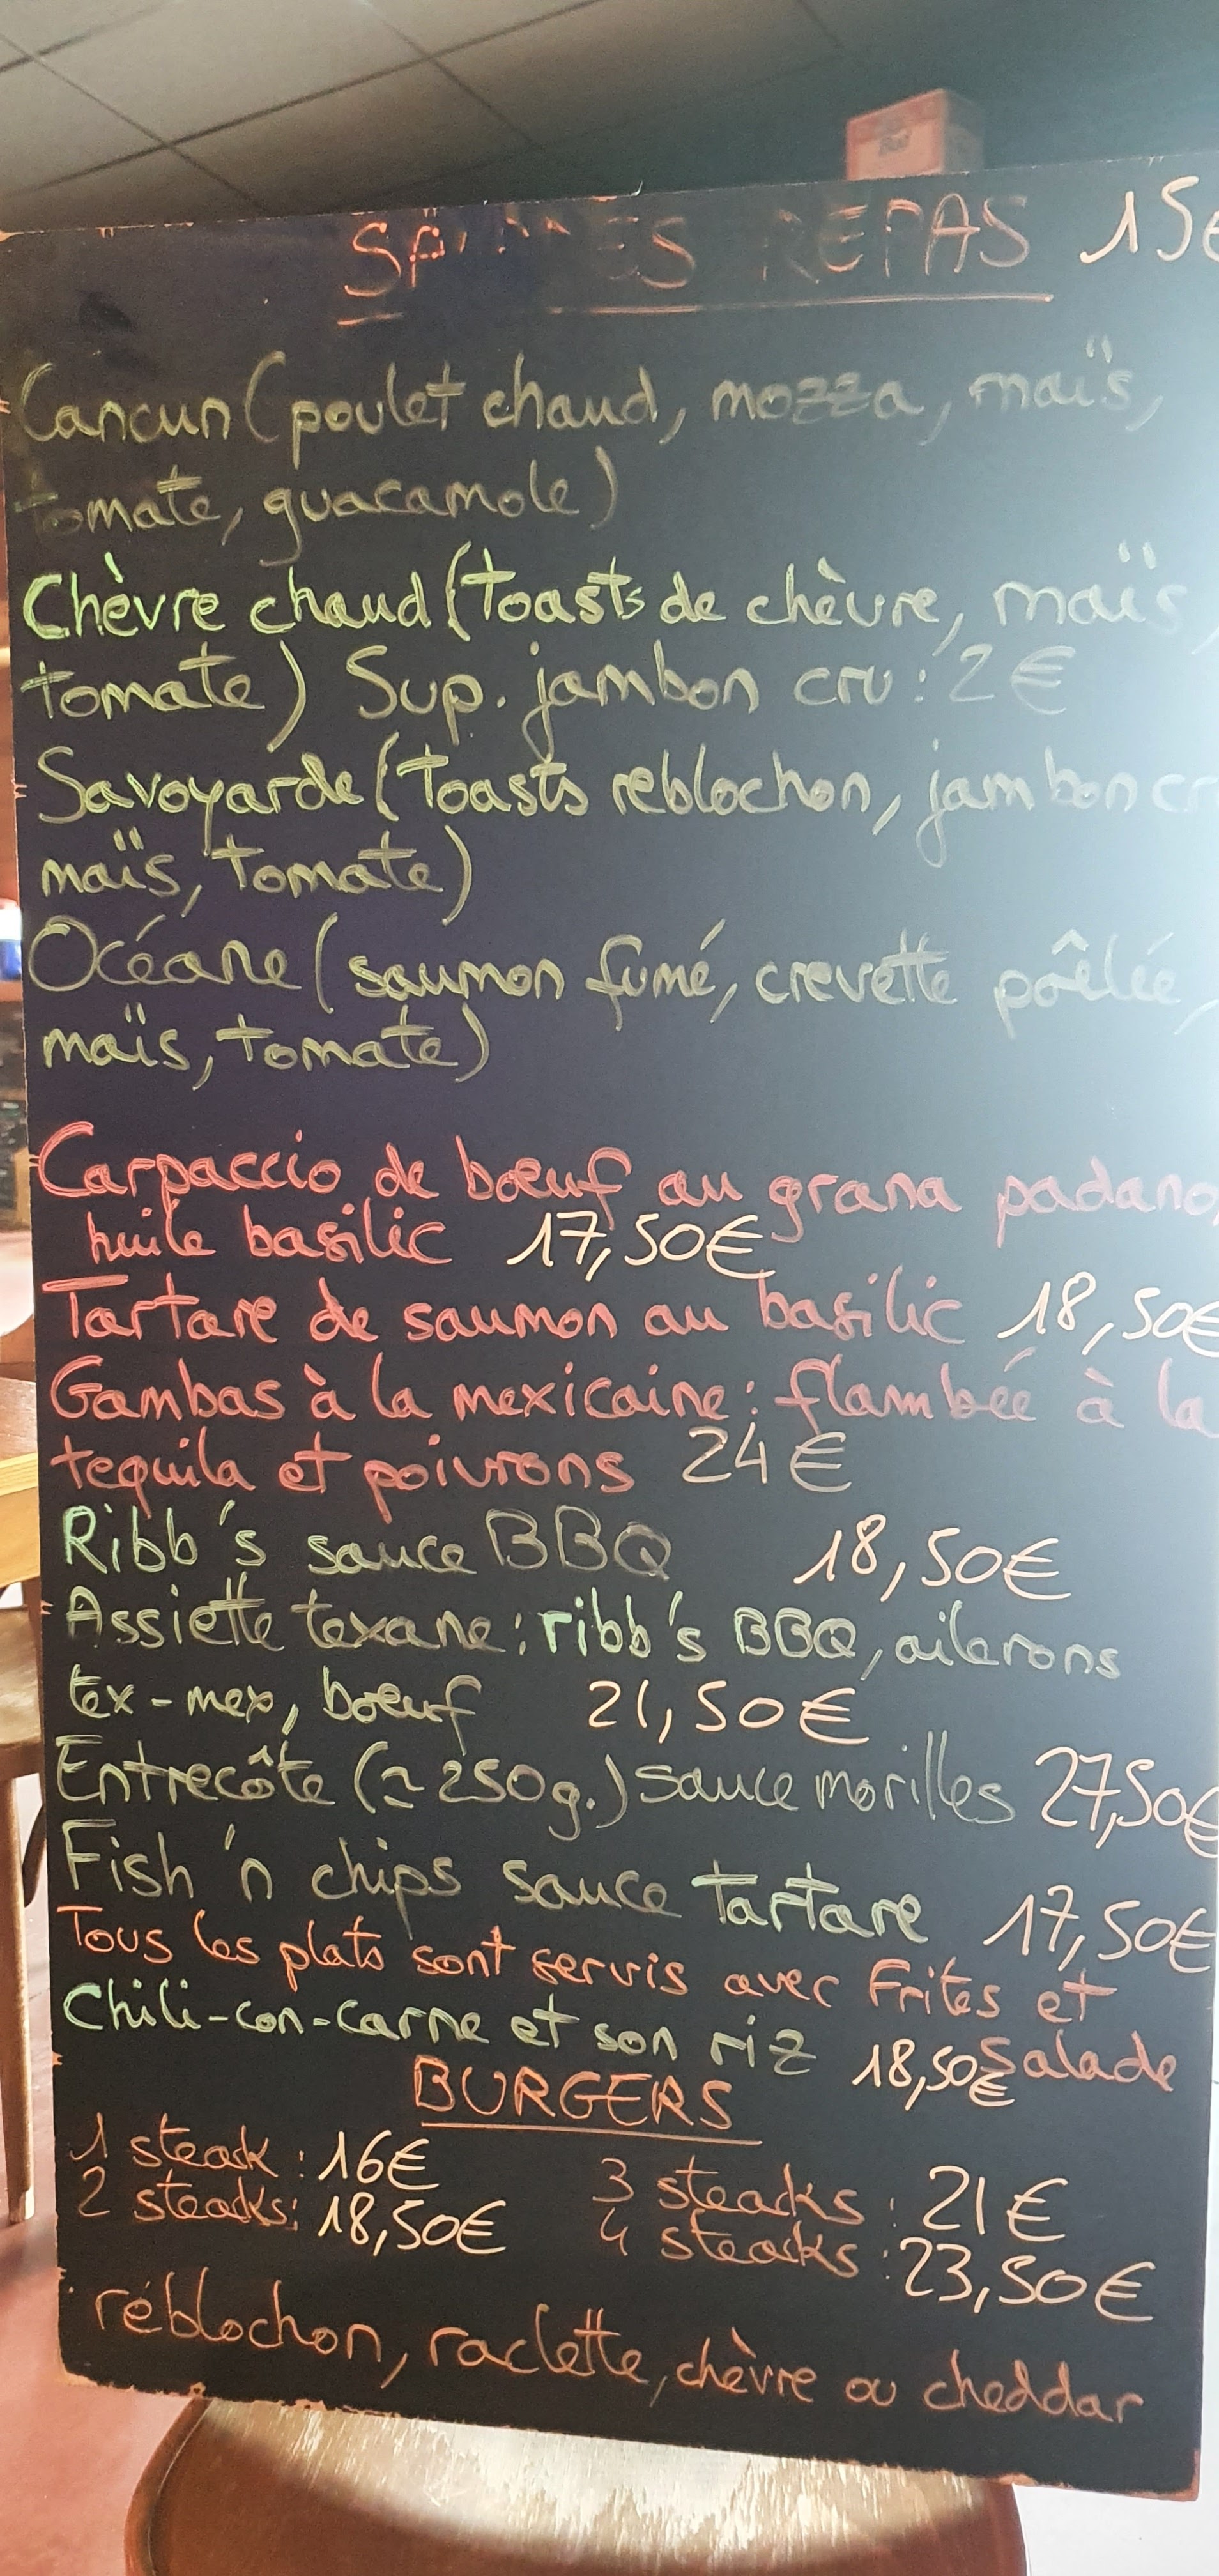 REPAS 15€
Cancun (poulet chaud, mozza, maïs,
tomate, guacamole)
Chèvre chaud (Toasts de chèvre, maïs,
tomate) Sup. jambon cru : 2€
Savoyarde (Toasts reblochon, jambon cr
maïs, tomate)
Océane (saumon fumé, crevette poêlée,
maïs, tomate)
Carpaccio de bœuf au grana padano,
huile basilic 17,50€
Tartare de saumon au basilic 18,50€
Gambas à la mexicaine : flambée à la
tequila et poivrons 24€
Ribb's sauce BBQ 18,50€
Assiette texane : ribb's BBQ, ailerons
tex-mex, bœuf 21,50€
Entrecôte (≃250g.) sauce morilles 27,50€
Fish 'n chips sauce Tartare 17,50€
Tous les plats sont servis avec Frites et
Salade
Chili-con-carne et son riz 18,50€
BURGERS
1 steak : 16€ 3 steacks : 21€
2 steacks : 18,50€ 4 steacks : 23,50€
réblochon, raclette, chèvre ou cheddar